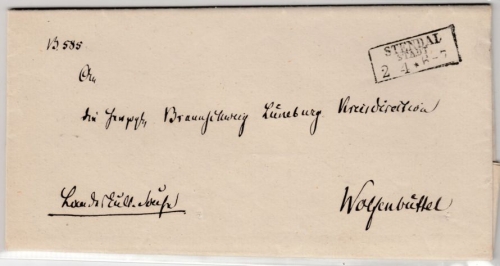 B. 585
STENDAL
STADT
2 4 * 6-7
An
die Herzogl. Braunschweig Lüneburg. Kreisdirection
Wolfenbüttel